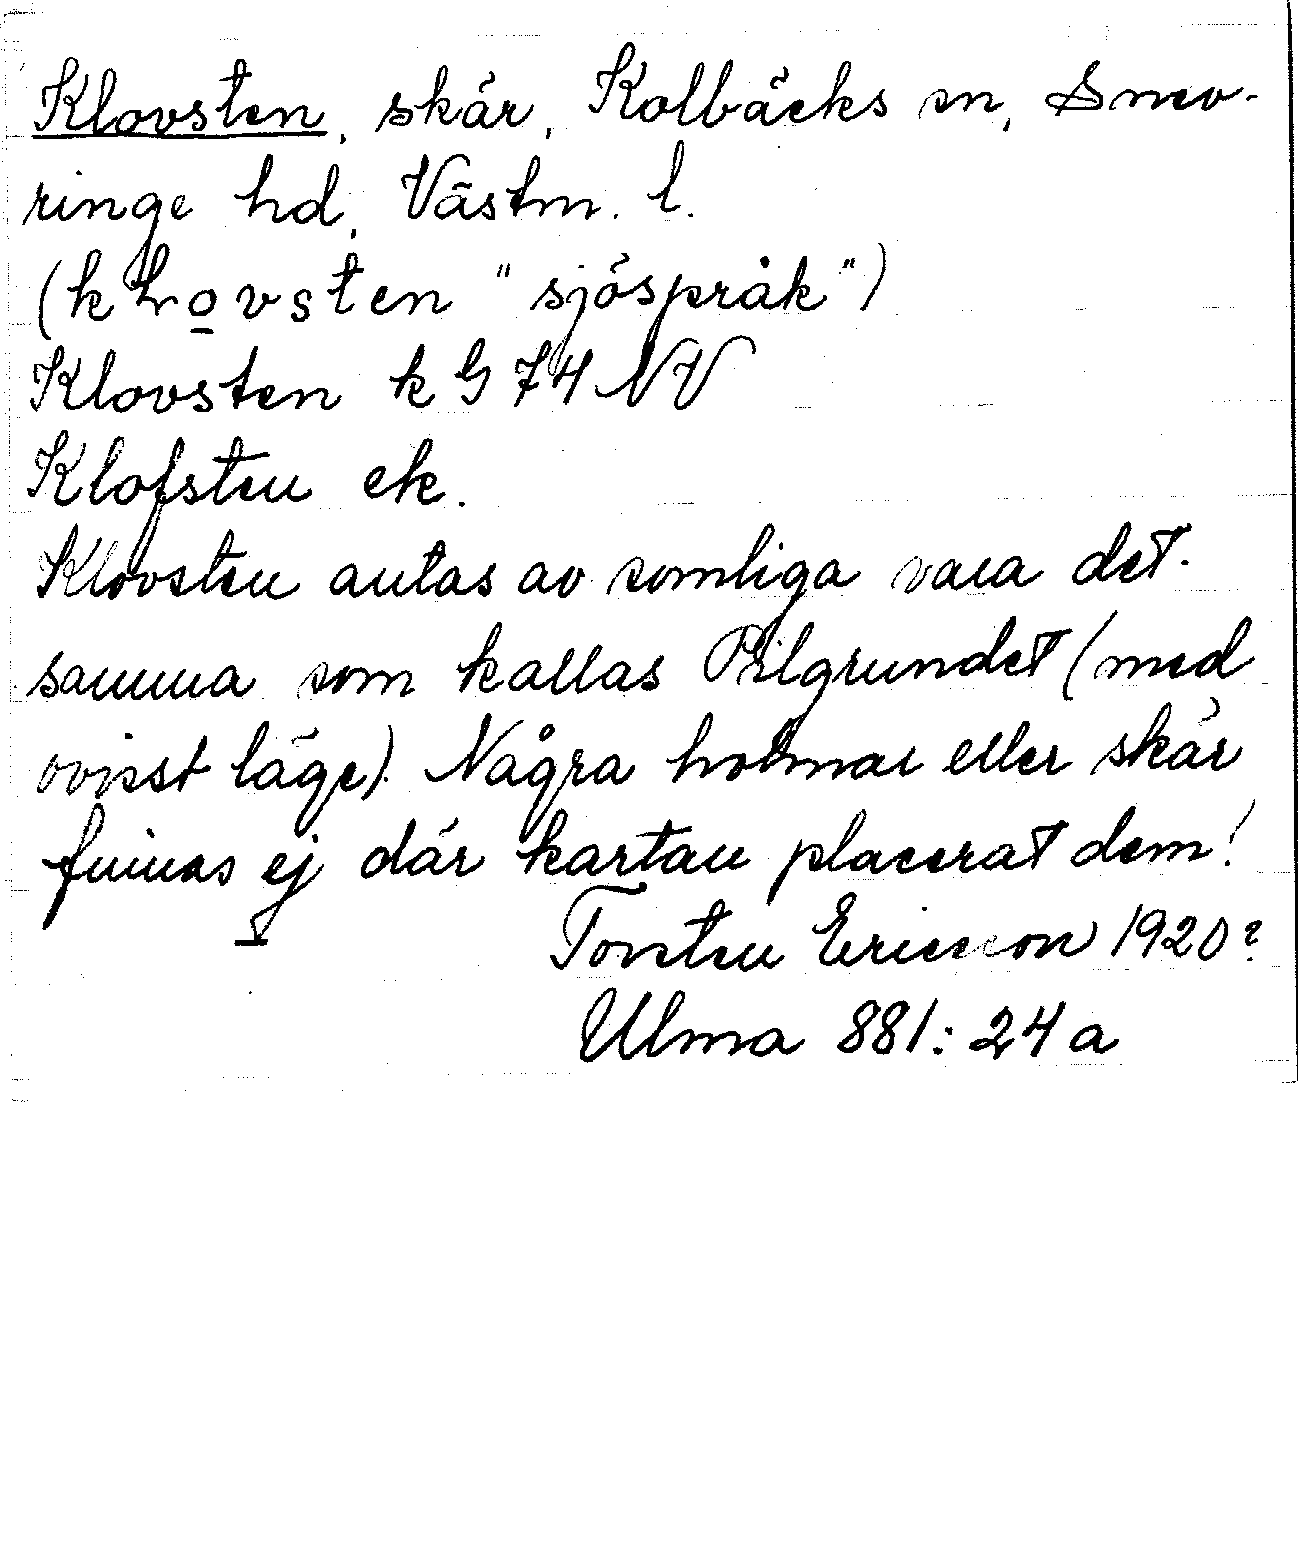 Klovsten, skär, Kolbäcks sn, Snev-
ringe hd, Västm. l.
(klovsten "sjöspråk")
Klovsten k G 74 NV
Klofsten ek.
Klovsten antas av somliga vara det-
samma som kallas Pilgrundet (med
ovisst läge). Några holmar eller skär
finnas ej där kartan placerat dem!
Torsten Ericsson 1920?
Ulma 881:24a